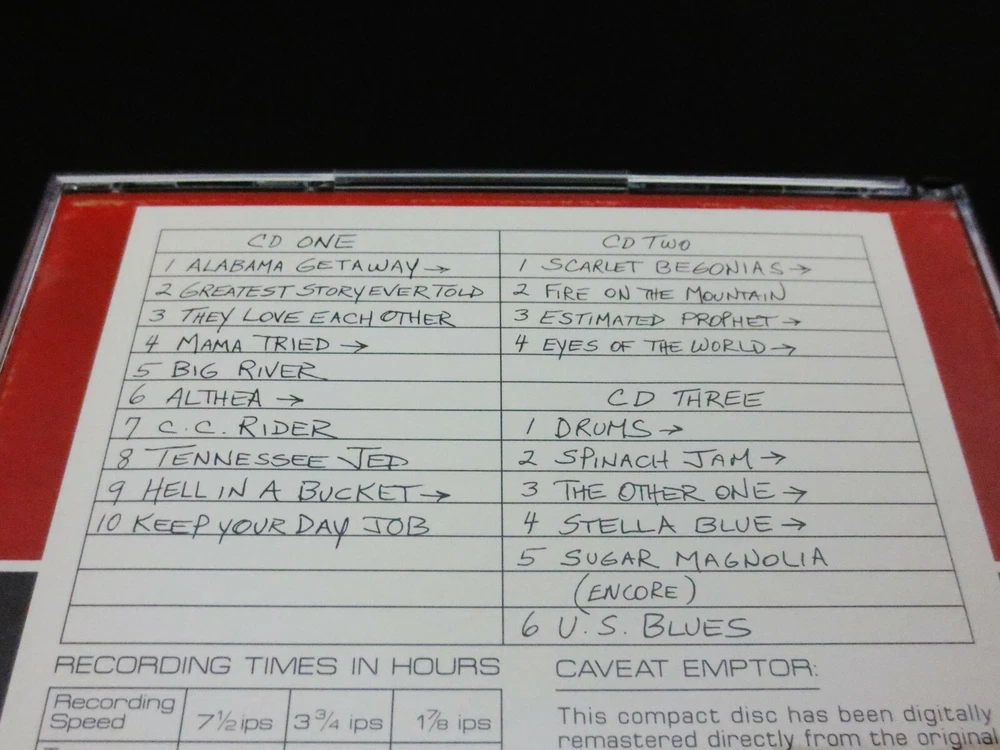 CD ONE
1 ALABAMA GETAWAY →
2 GREATEST STORY EVER TOLD
3 THEY LOVE EACH OTHER
4 MAMA TRIED →
5 BIG RIVER
6 ALTHEA →
7 C.C. RIDER
8 TENNESSEE JED
9 HELL IN A BUCKET →
10 KEEP YOUR DAY JOB
CD TWO
1 SCARLET BEGONIAS →
2 FIRE ON THE MOUNTAIN
3 ESTIMATED PROPHET →
4 EYES OF THE WORLD →
CD THREE
1 DRUMS →
2 SPINACH JAM →
3 THE OTHER ONE →
4 STELLA BLUE →
5 SUGAR MAGNOLIA
(ENCORE)
6 U.S. BLUES
RECORDING TIMES IN HOURS
Recording Speed
7½ ips
3¾ ips
1⅞ ips
CAVEAT EMPTOR:
This compact disc has been digitally
remastered directly from the original